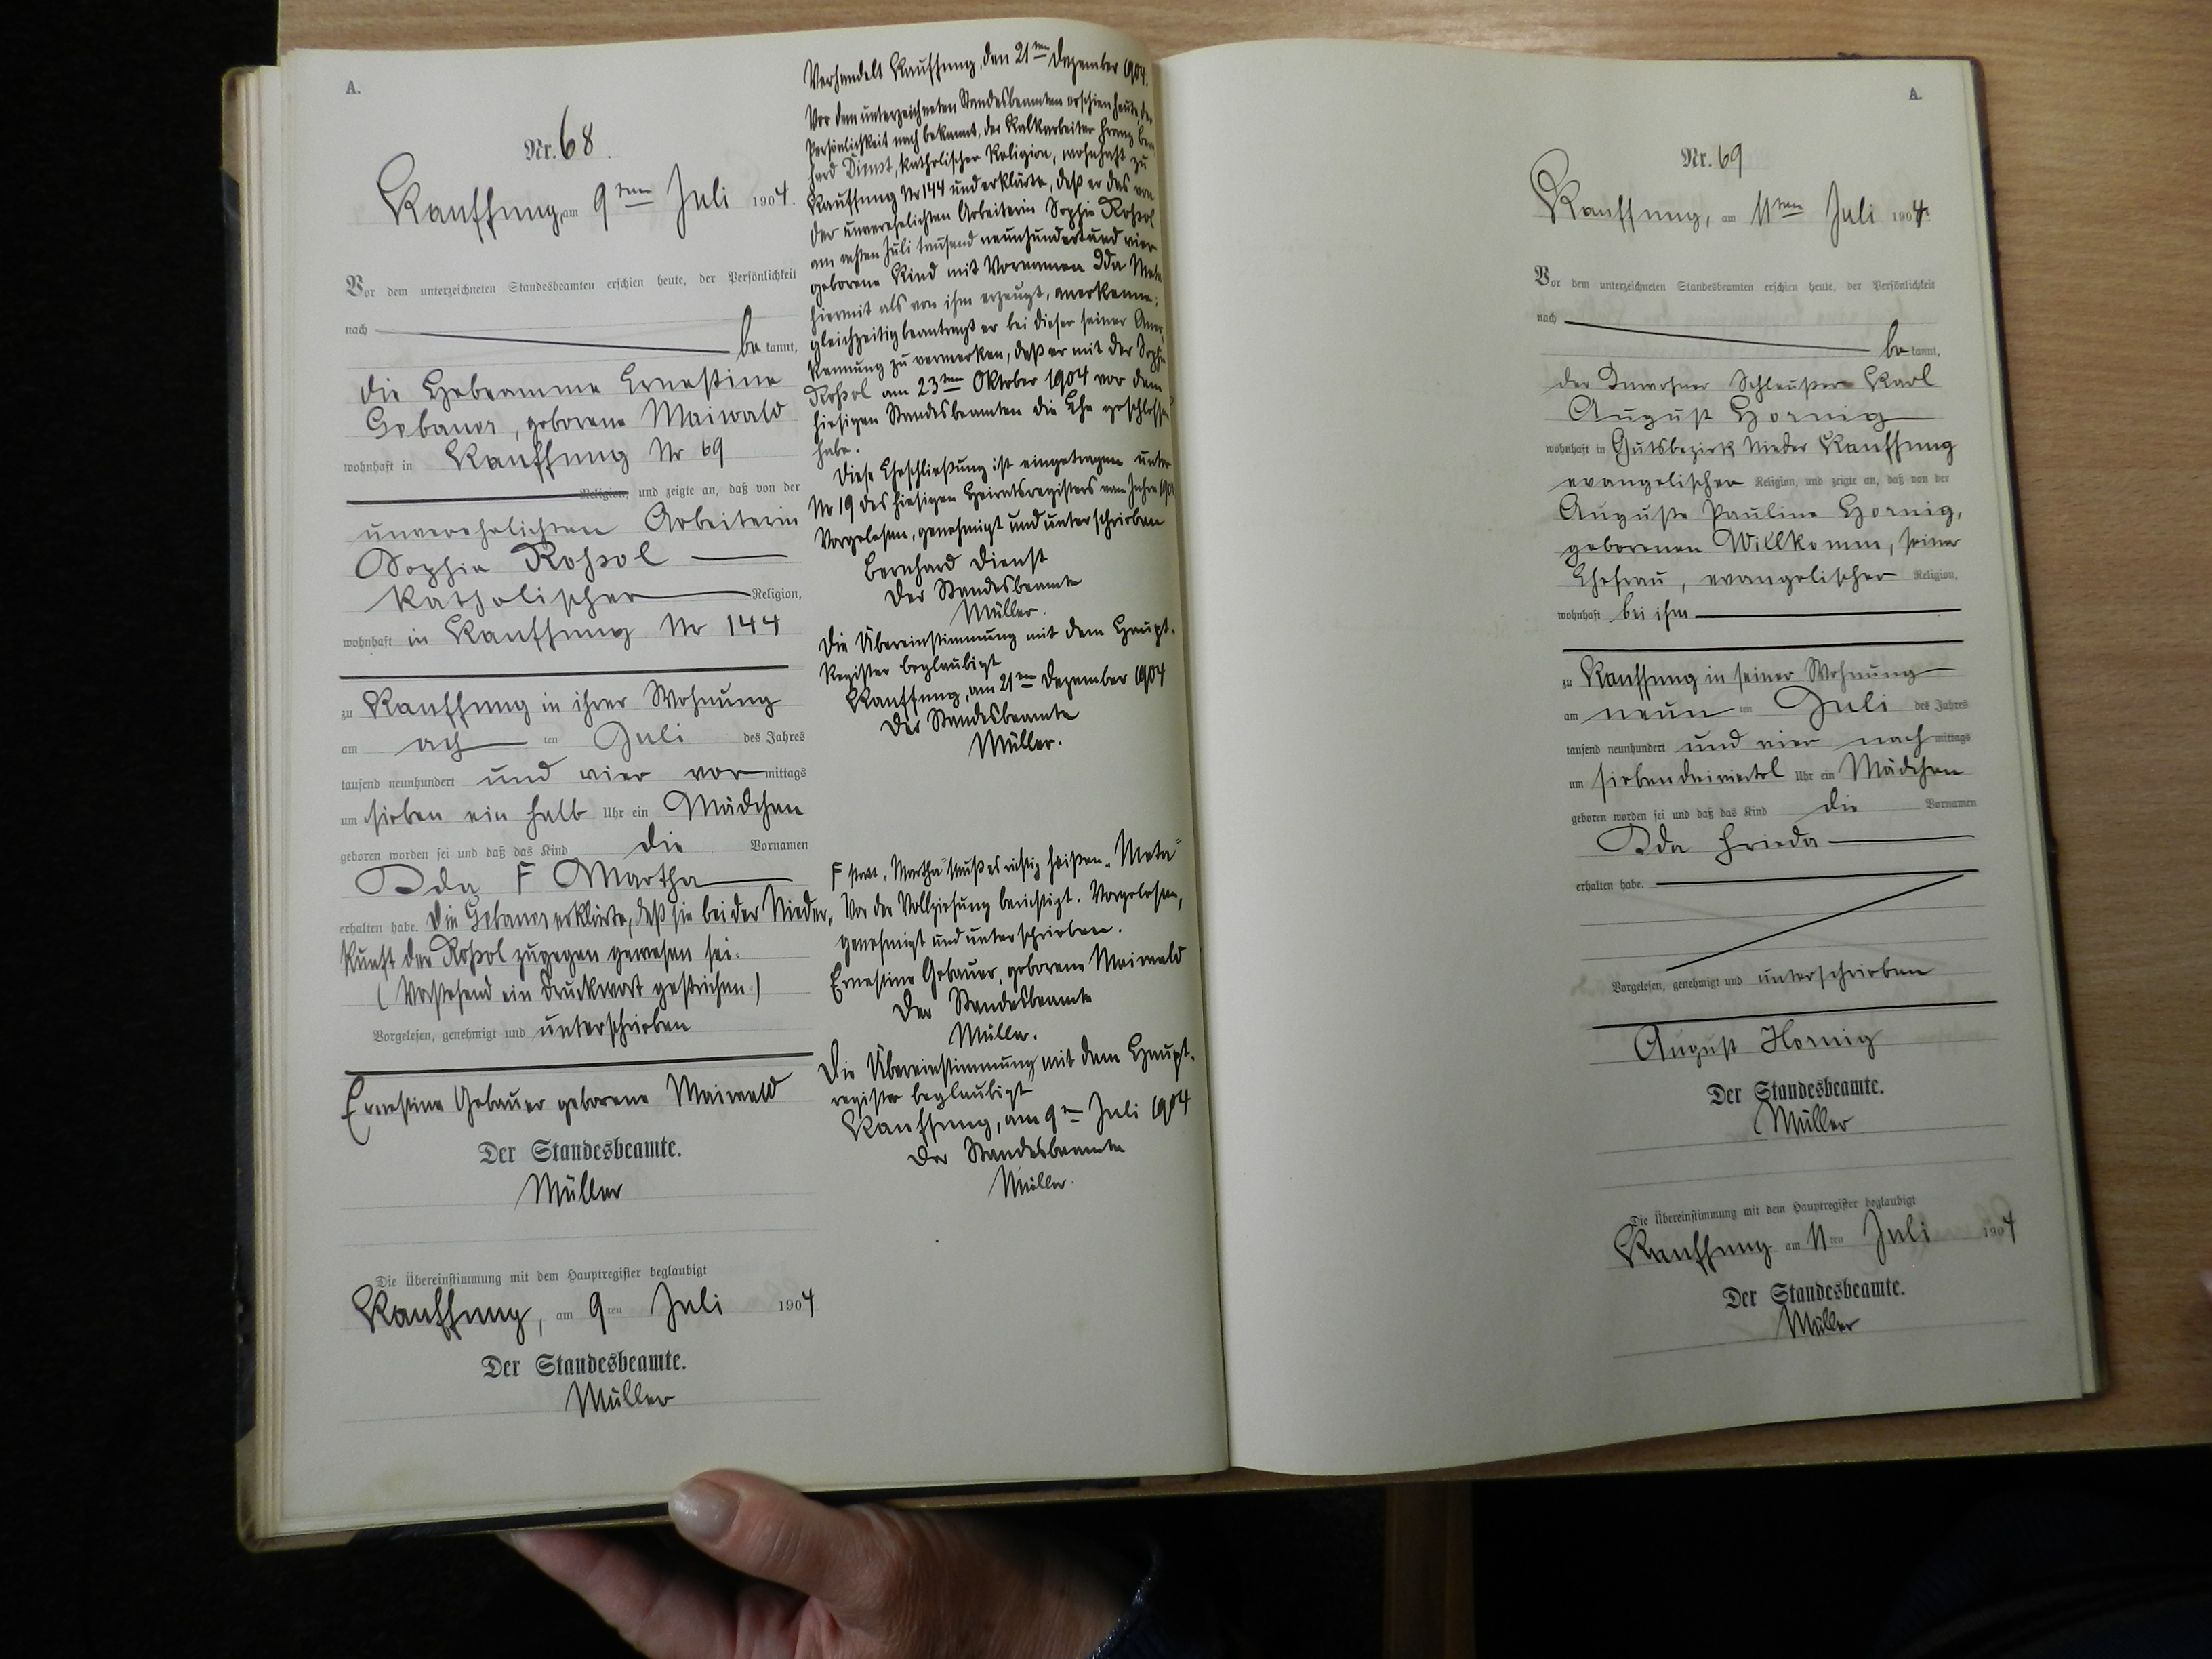 A.
Nr. 68.
Kauffung, am 9ten Juli 1904.
Vor dem unterzeichneten Standesbeamten erschien heute, der Persönlichkeit
nach bekannt,
die Hebeamme Ernestine
Gebauer, geborene Maiwald
wohnhaft in Kauffung Nr 69
Religion, und zeigte an, daß von der
unverehelichten Arbeiterin
Sophie Roßol
katholischer Religion,
wohnhaft in Kauffung Nr 144
zu Kauffung in ihrer Wohnung
am achten Juli des Jahres
tausend neunhundert und vier vormittags
um sieben ein halb Uhr ein Mädchen
geboren worden sei und daß das Kind die Vornamen
Ida F Martha
erhalten habe. Die Gebauer erklärte, daß sie bei der Nieder-
kunft der Roßol zugegen gewesen sei.
(Vorstehend ein Druckwort gestrichen)
Vorgelesen, genehmigt und unterschrieben
Ernestine Gebauer geborene Maiwald
Der Standesbeamte.
Müller
Die Übereinstimmung mit dem Hauptregister beglaubigt
Kauffung, am 9ten Juli 1904
Der Standesbeamte.
Müller
Verhandelt Kauffung, den 21ten Dezember 1904.
Vor dem unterzeichneten Standesbeamten erschien heute, der
Persönlichkeit nach bekannt, der Kalkarbeiter Franz Bern-
hard Dienst, katholischer Religion, wohnhaft zu
Kauffung Nr 144 und erklärte, daß er das von
der unverehelichten Arbeiterin Sophie Roßol
am achten Juli tausend neunhundert und vier
geborene Kind mit Vornamen Ida Meta
hiermit als von ihm erzeugt, anerkenne;
gleichzeitig beantragt er bei dieser seiner Aner-
kennung zu vermerken, daß er mit der Sophie
Roßol am 23ten Oktober 1904 vor dem
hiesigen Standesbeamten die Ehe geschlossen
habe.
Diese Eheschließung ist eingetragen unter
Nr 19 des hiesigen Heiratsregisters vom Jahre 1904
Vorgelesen, genehmigt und unterschrieben
Bernhard Dienst
Der Standesbeamte
Müller.
Die Übereinstimmung mit dem Haupt-
Register beglaubigt
Kauffung, am 21ten Dezember 1904
Der Standesbeamte
Müller.
F statt „Martha“ muß es richtig heißen „Meta“
Vor der Vollziehung berichtigt. Vorgelesen,
genehmigt und unterschrieben.
Ernestine Gebauer, geborene Maiwald
Der Standesbeamte
Müller.
Die Übereinstimmung mit dem Haupt-
register beglaubigt
Kauffung, am 9ten Juli 1904
Der Standesbeamte
Müller.
A.
Nr. 69
Kauffung, am 11ten Juli 1904.
Vor dem unterzeichneten Standesbeamten erschien heute, der Persönlichkeit
nach bekannt,
der Inwohner Schleußer Karl
August Hornig
wohnhaft in Gutsbezirk Nieder Kauffung
evangelischer Religion, und zeigte an, daß von der
Auguste Pauline Hornig,
geborenen Willkomm, seiner
Ehefrau, evangelischer Religion,
wohnhaft bei ihm
zu Kauffung in seiner Wohnung
am neunten Juli des Jahres
tausend neunhundert und vier nachmittags
um sieben dreiviertel Uhr ein Mädchen
geboren worden sei und daß das Kind die Vornamen
Ida Frieda
erhalten habe.
Vorgelesen, genehmigt und unterschrieben
August Hornig
Der Standesbeamte.
Müller
Die Übereinstimmung mit dem Hauptregister beglaubigt
Kauffung am 11ten Juli 1904
Der Standesbeamte.
Müller